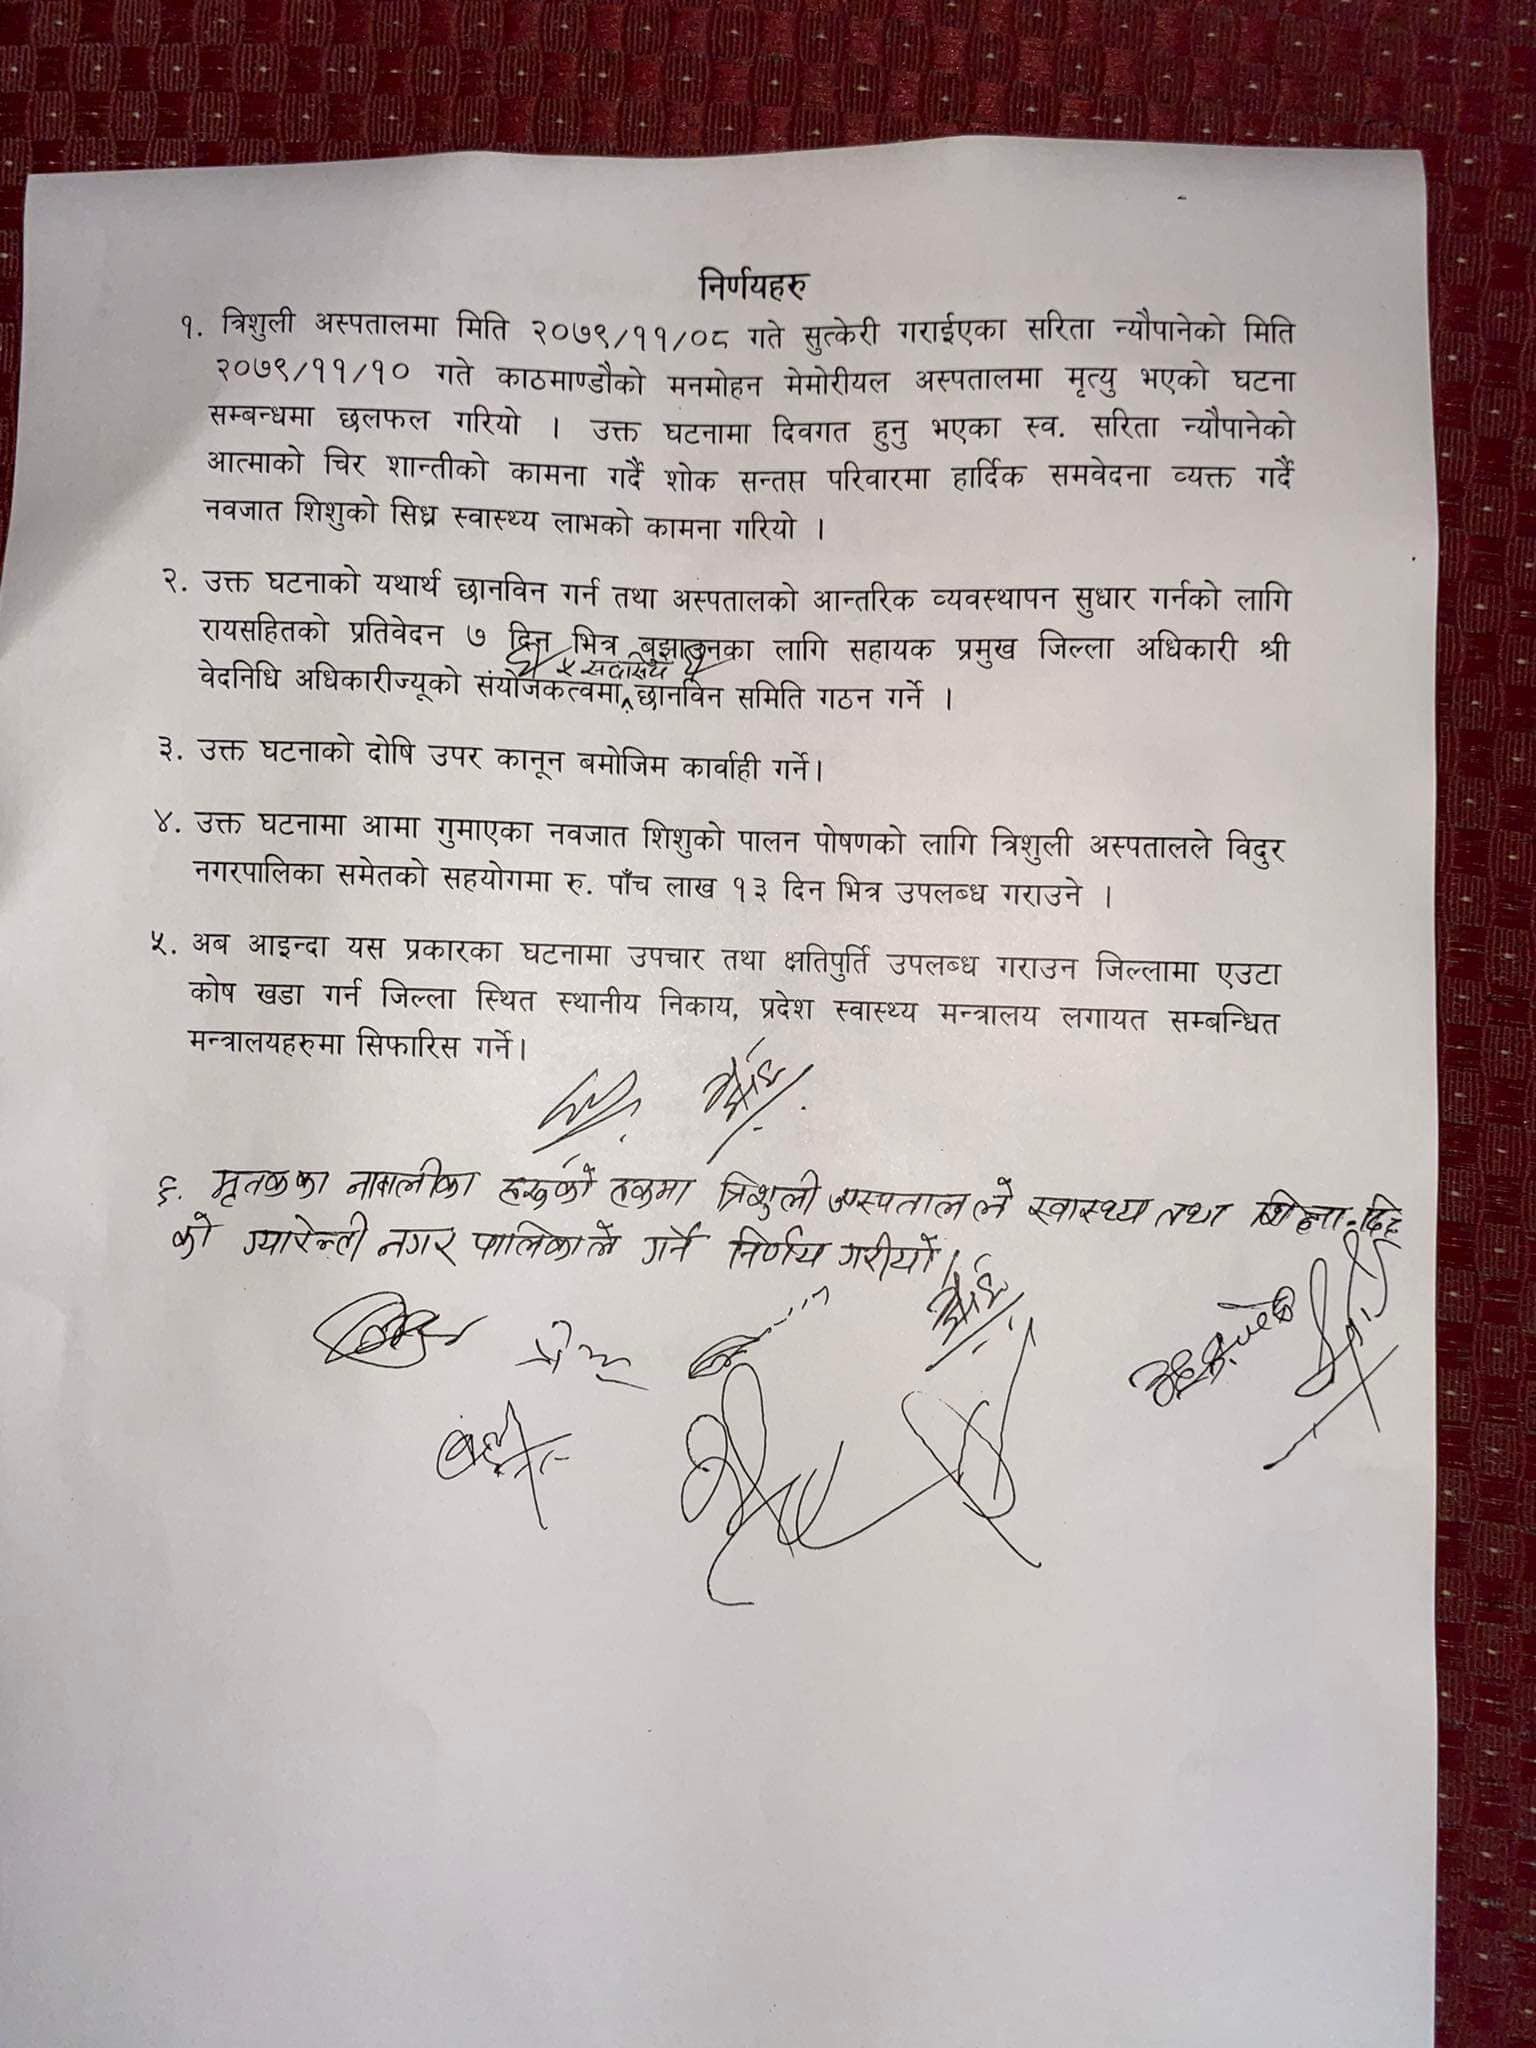 निर्णयहरु
१. त्रिशुली अस्पतालमा मिति २०७९/११/०८ गते सुत्केरी गराईएका सरिता न्यौपानेको मिति
२०७९/११/१० गते काठमाण्डौको मनमोहन मेमोरीयल अस्पतालमा मृत्यु भएको घटना
सम्बन्धमा छलफल गरियो । उक्त घटनामा दिवगत हुनु भएका स्व. सरिता न्यौपानेको
आत्माको चिर शान्तीको कामना गर्दै शोक सन्तप्त परिवारमा हार्दिक समवेदना व्यक्त गर्दै
नवजात शिशुको सिघ्र स्वास्थ्य लाभको कामना गरियो ।
२. उक्त घटनाको यथार्थ छानविन गर्न तथा अस्पतालको आन्तरिक व्यवस्थापन सुधार गर्नको लागि
रायसहितको प्रतिवेदन ७ दिन भित्र बुझाउनका लागि सहायक प्रमुख जिल्ला अधिकारी श्री
५ सदसिय
वेदनिधि अधिकारीज्यूको संयोजकत्वमा छानविन समिति गठन गर्ने ।
३. उक्त घटनाको दोषि उपर कानून बमोजिम कार्वाही गर्ने।
४. उक्त घटनामा आमा गुमाएका नवजात शिशुको पालन पोषणको लागि त्रिशुली अस्पतालले विदुर
नगरपालिका समेतको सहयोगमा रु. पाँच लाख १३ दिन भित्र उपलब्ध गराउने ।
५. अब आइन्दा यस प्रकारका घटनामा उपचार तथा क्षतिपुर्ति उपलब्ध गराउन जिल्लामा एउटा
कोष खडा गर्न जिल्ला स्थित स्थानीय निकाय, प्रदेश स्वास्थ्य मन्त्रालय लगायत सम्बन्धित
मन्त्रालयहरुमा सिफारिस गर्ने।
६. मृतकका नाबालीका हरुको हकमा त्रिशुली अस्पतालले स्वास्थ्य तथा
को ग्यारेन्टी नगरपालिकाले गर्ने निर्णय गरीयो।